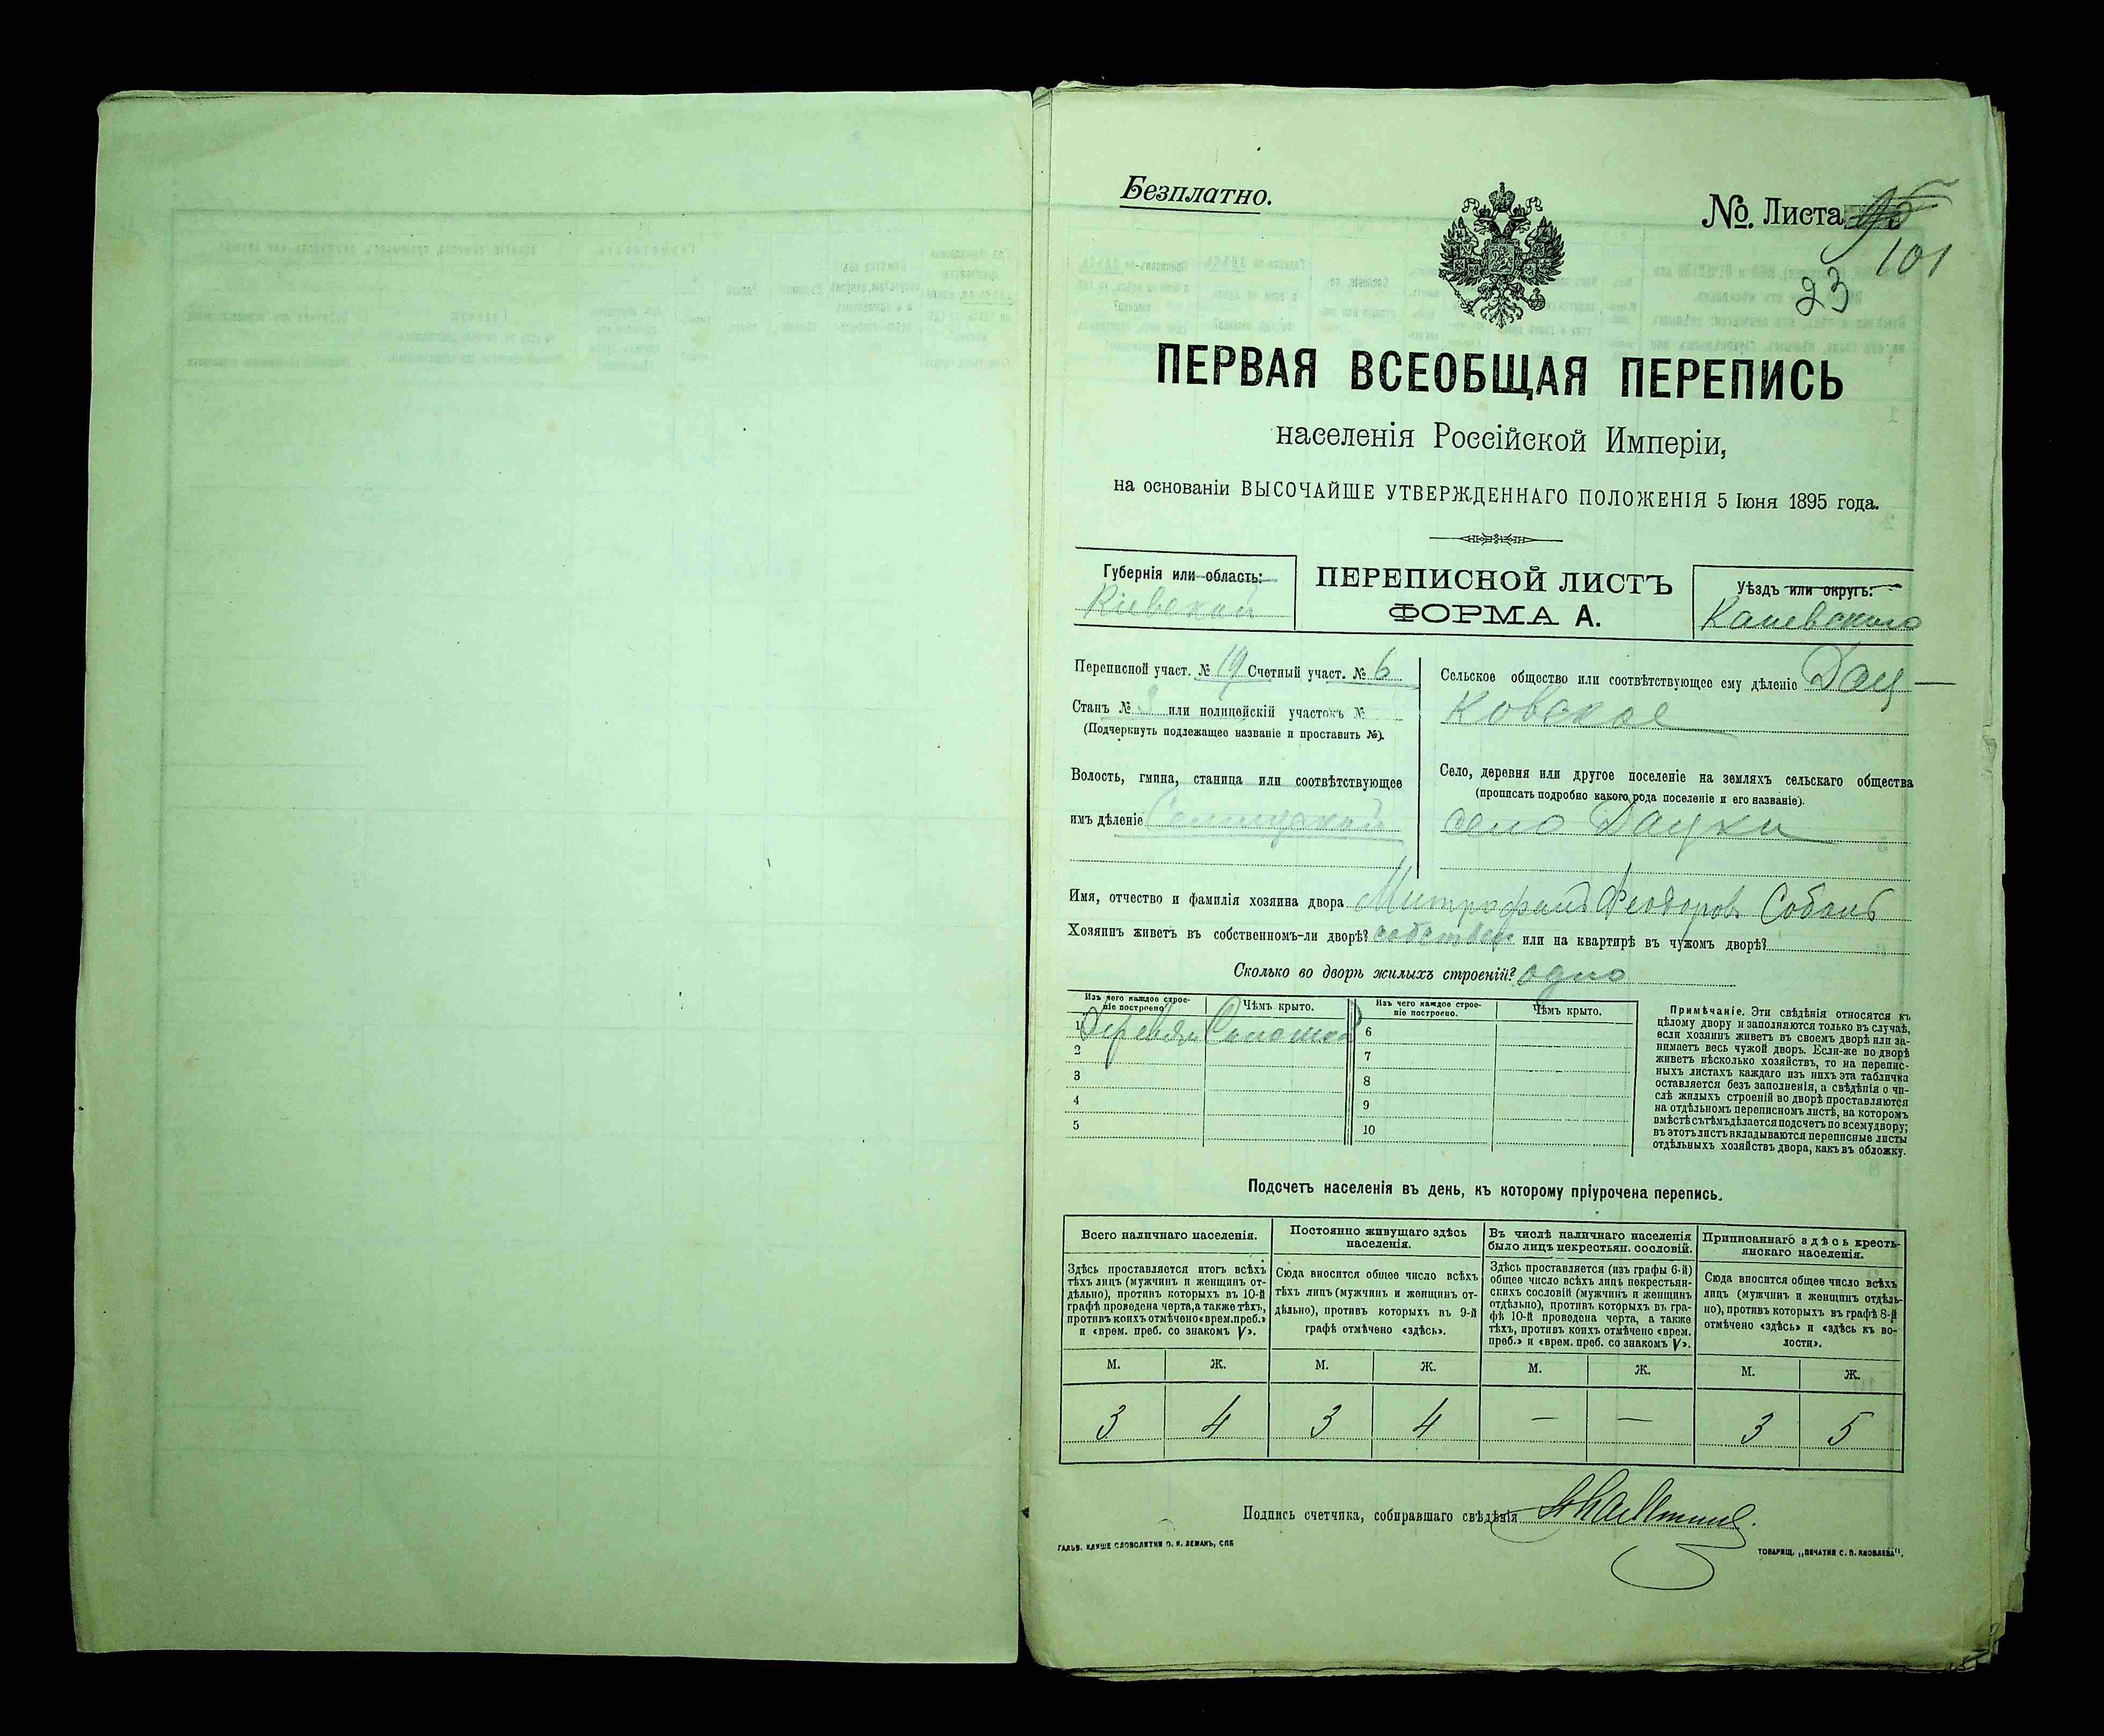 Безплатно.
№ Листа
101
23
ПЕРВАЯ ВСЕОБЩАЯ ПЕРЕПИСЬ
населенія Россійской Имперіи,
на основаніи ВЫСОЧАЙШЕ УТВЕРЖДЕННАГО ПОЛОЖЕНІЯ 5 Іюня 1895 года.
Губернія или область:
Кіевской
ПЕРЕПИСНОЙ ЛИСТЪ
ФОРМА А.
Уѣздъ или округъ:
Каневскаго
Переписной участ. № 19 Счетный участ. № 6
Станъ № или полицейскій участокъ №
(Подчеркнуть подлежащее названіе и проставить №).
Волость, гмина, станица или соотвѣтствующее
имъ дѣленіе
Сельское общество или соотвѣтствующее ему дѣленіе Дац-
ковское
Село, деревня или другое поселеніе на земляхъ сельскаго общества
(прописать подробно какого рода поселеніе и его названіе).
село Дацки
Имя, отчество и фамилія хозяина двора Митрофанъ Феодоров Собань
Хозяинъ живетъ въ собственномъ-ли дворѣ? собствен или на квартирѣ въ чужомъ дворѣ?
Сколько во дворѣ жилыхъ строеній? одно
Изъ чего каждое строе-
ніе построено.
Чѣмъ крыто.
Изъ чего каждое строе-
ніе построено.
Чѣмъ крыто.
1 Деревян Солома 6
2 7
3 8
4 9
5 10
Примѣчаніе. Эти свѣдѣнія относятся къ
цѣлому двору и заполняются только въ случаѣ,
если хозяинъ живетъ въ своемъ дворѣ или за-
нимаетъ весь чужой дворъ. Если-же во дворѣ
живетъ нѣсколько хозяйствъ, то на перепис-
ныхъ листахъ каждаго изъ нихъ эта табличка
оставляется безъ заполненія, а свѣдѣнія о чи-
слѣ жилыхъ строеній во дворѣ проставляются
на отдѣльномъ переписномъ листѣ, на которомъ
вмѣстѣ съ тѣмъ дѣлается подсчетъ по всему двору;
въ этотъ листъ вкладываются переписные листы
отдѣльныхъ хозяйствъ двора, какъ въ обложку.
Подсчетъ населенія въ день, къ которому пріурочена перепись.
Всего наличнаго населенія.
Здѣсь проставляется итогъ всѣхъ
тѣхъ лицъ (мужчинъ и женщинъ от-
дѣльно), противъ которыхъ въ 10-й
графѣ проведена черта, а также тѣхъ,
противъ коихъ отмѣчено «врем. преб.»
и «врем. преб. со знакомъ V».
Постоянно живущаго здѣсь
населенія.
Сюда вносится общее число всѣхъ
тѣхъ лицъ (мужчинъ и женщинъ от-
дѣльно), противъ которыхъ въ 9-й
графѣ отмѣчено «здѣсь».
Въ числѣ наличнаго населенія
было лицъ некрестьян. сословій.
Здѣсь проставляется (изъ графы 6-й)
общее число всѣхъ лицъ некрестьян-
скихъ сословій (мужчинъ и женщинъ
отдѣльно), противъ которыхъ въ гра-
фѣ 10-й проведена черта, а также
тѣхъ, противъ коихъ отмѣчено «врем.
преб.» и «врем. преб. со знакомъ V».
Приписаннаго здѣсь кресть-
янскаго населенія.
Сюда вносится общее число всѣхъ
лицъ (мужчинъ и женщинъ отдѣль-
но), противъ которыхъ въ графѣ 8-й
отмѣчено «здѣсь» и «здѣсь къ во-
лости».
М. Ж. М. Ж. М. Ж. М. Ж.
3 4 3 4 — — 3 5
Подпись счетчика, собиравшаго свѣдѣнія
ГАЛЬВ. КЛИШЕ СЛОВОЛИТНИ О. И. ЛЕМАНЪ, СПБ
ТОВАРИЩ. „ПЕЧАТНЯ С. П. ЯКОВЛЕВА".